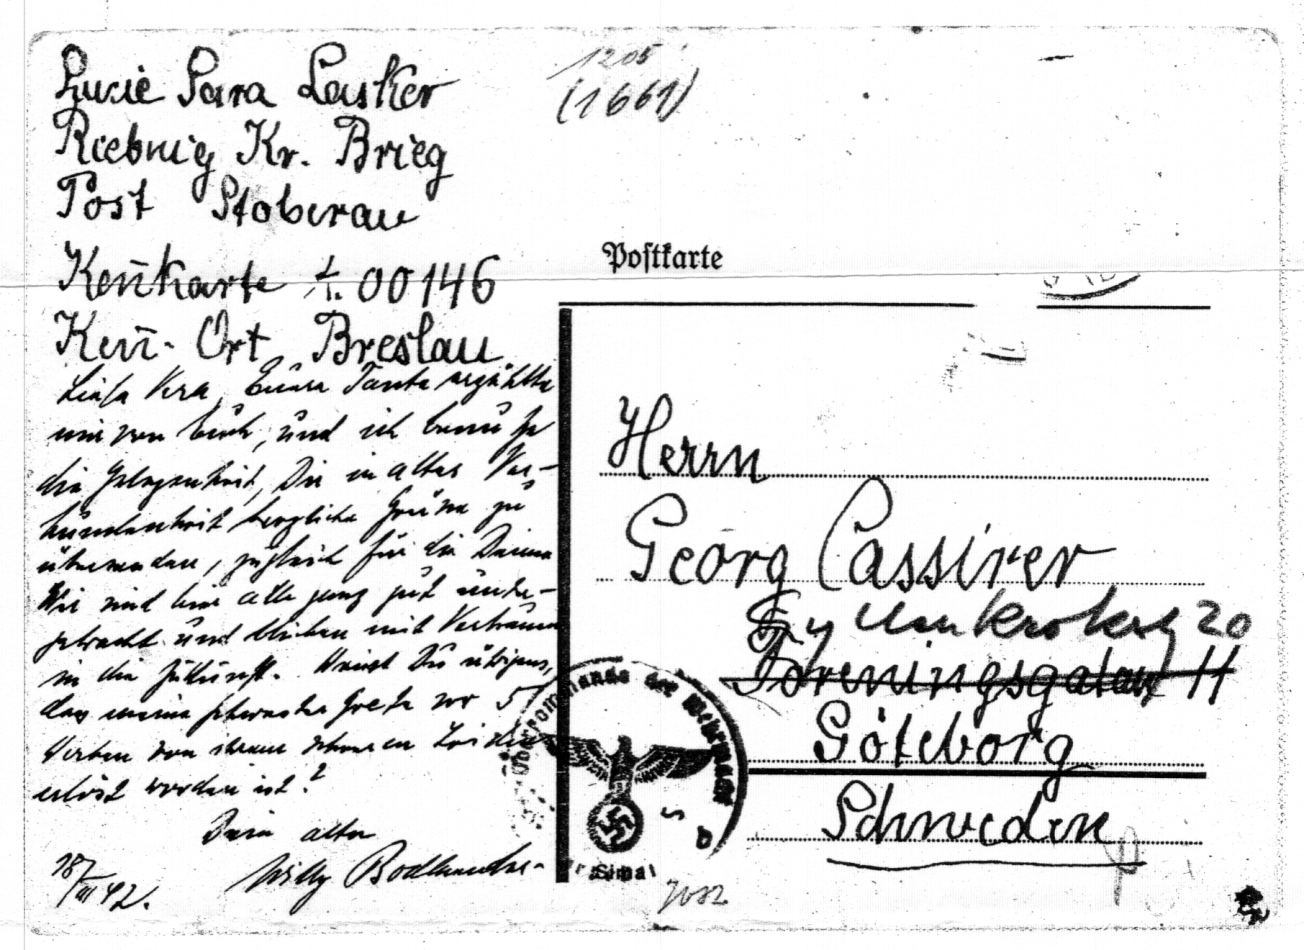 Lucie Sara Lasker
Riebnig Kr. Brieg
Post Stoberau
Keñkarte 00146
Keñ-Ort Breslau
1205
(1661)
Postkarte
Herrn
Georg Cassirer
20
Föreningsgatan 11
Göteborg
Schweden
Liebe Vera, Eure Tante erzählte
mir von Euch, und ich benutze
die Gelegenheit, Dir in alter Ver-
bundenheit herzliche Grüsse zu
übersenden, zugleich für die Deinen
Wir sind hier alle ganz gut unter-
gebracht und blicken mit Vertrauen
in die Zukunft. Weisst Du übrigens,
dass meine Schwester Grete vor 5
von ihrem schweren Leiden
erlöst worden ist?
Dein alter
Willy
18/III 42.
Oberkommando der Wehrmacht
b